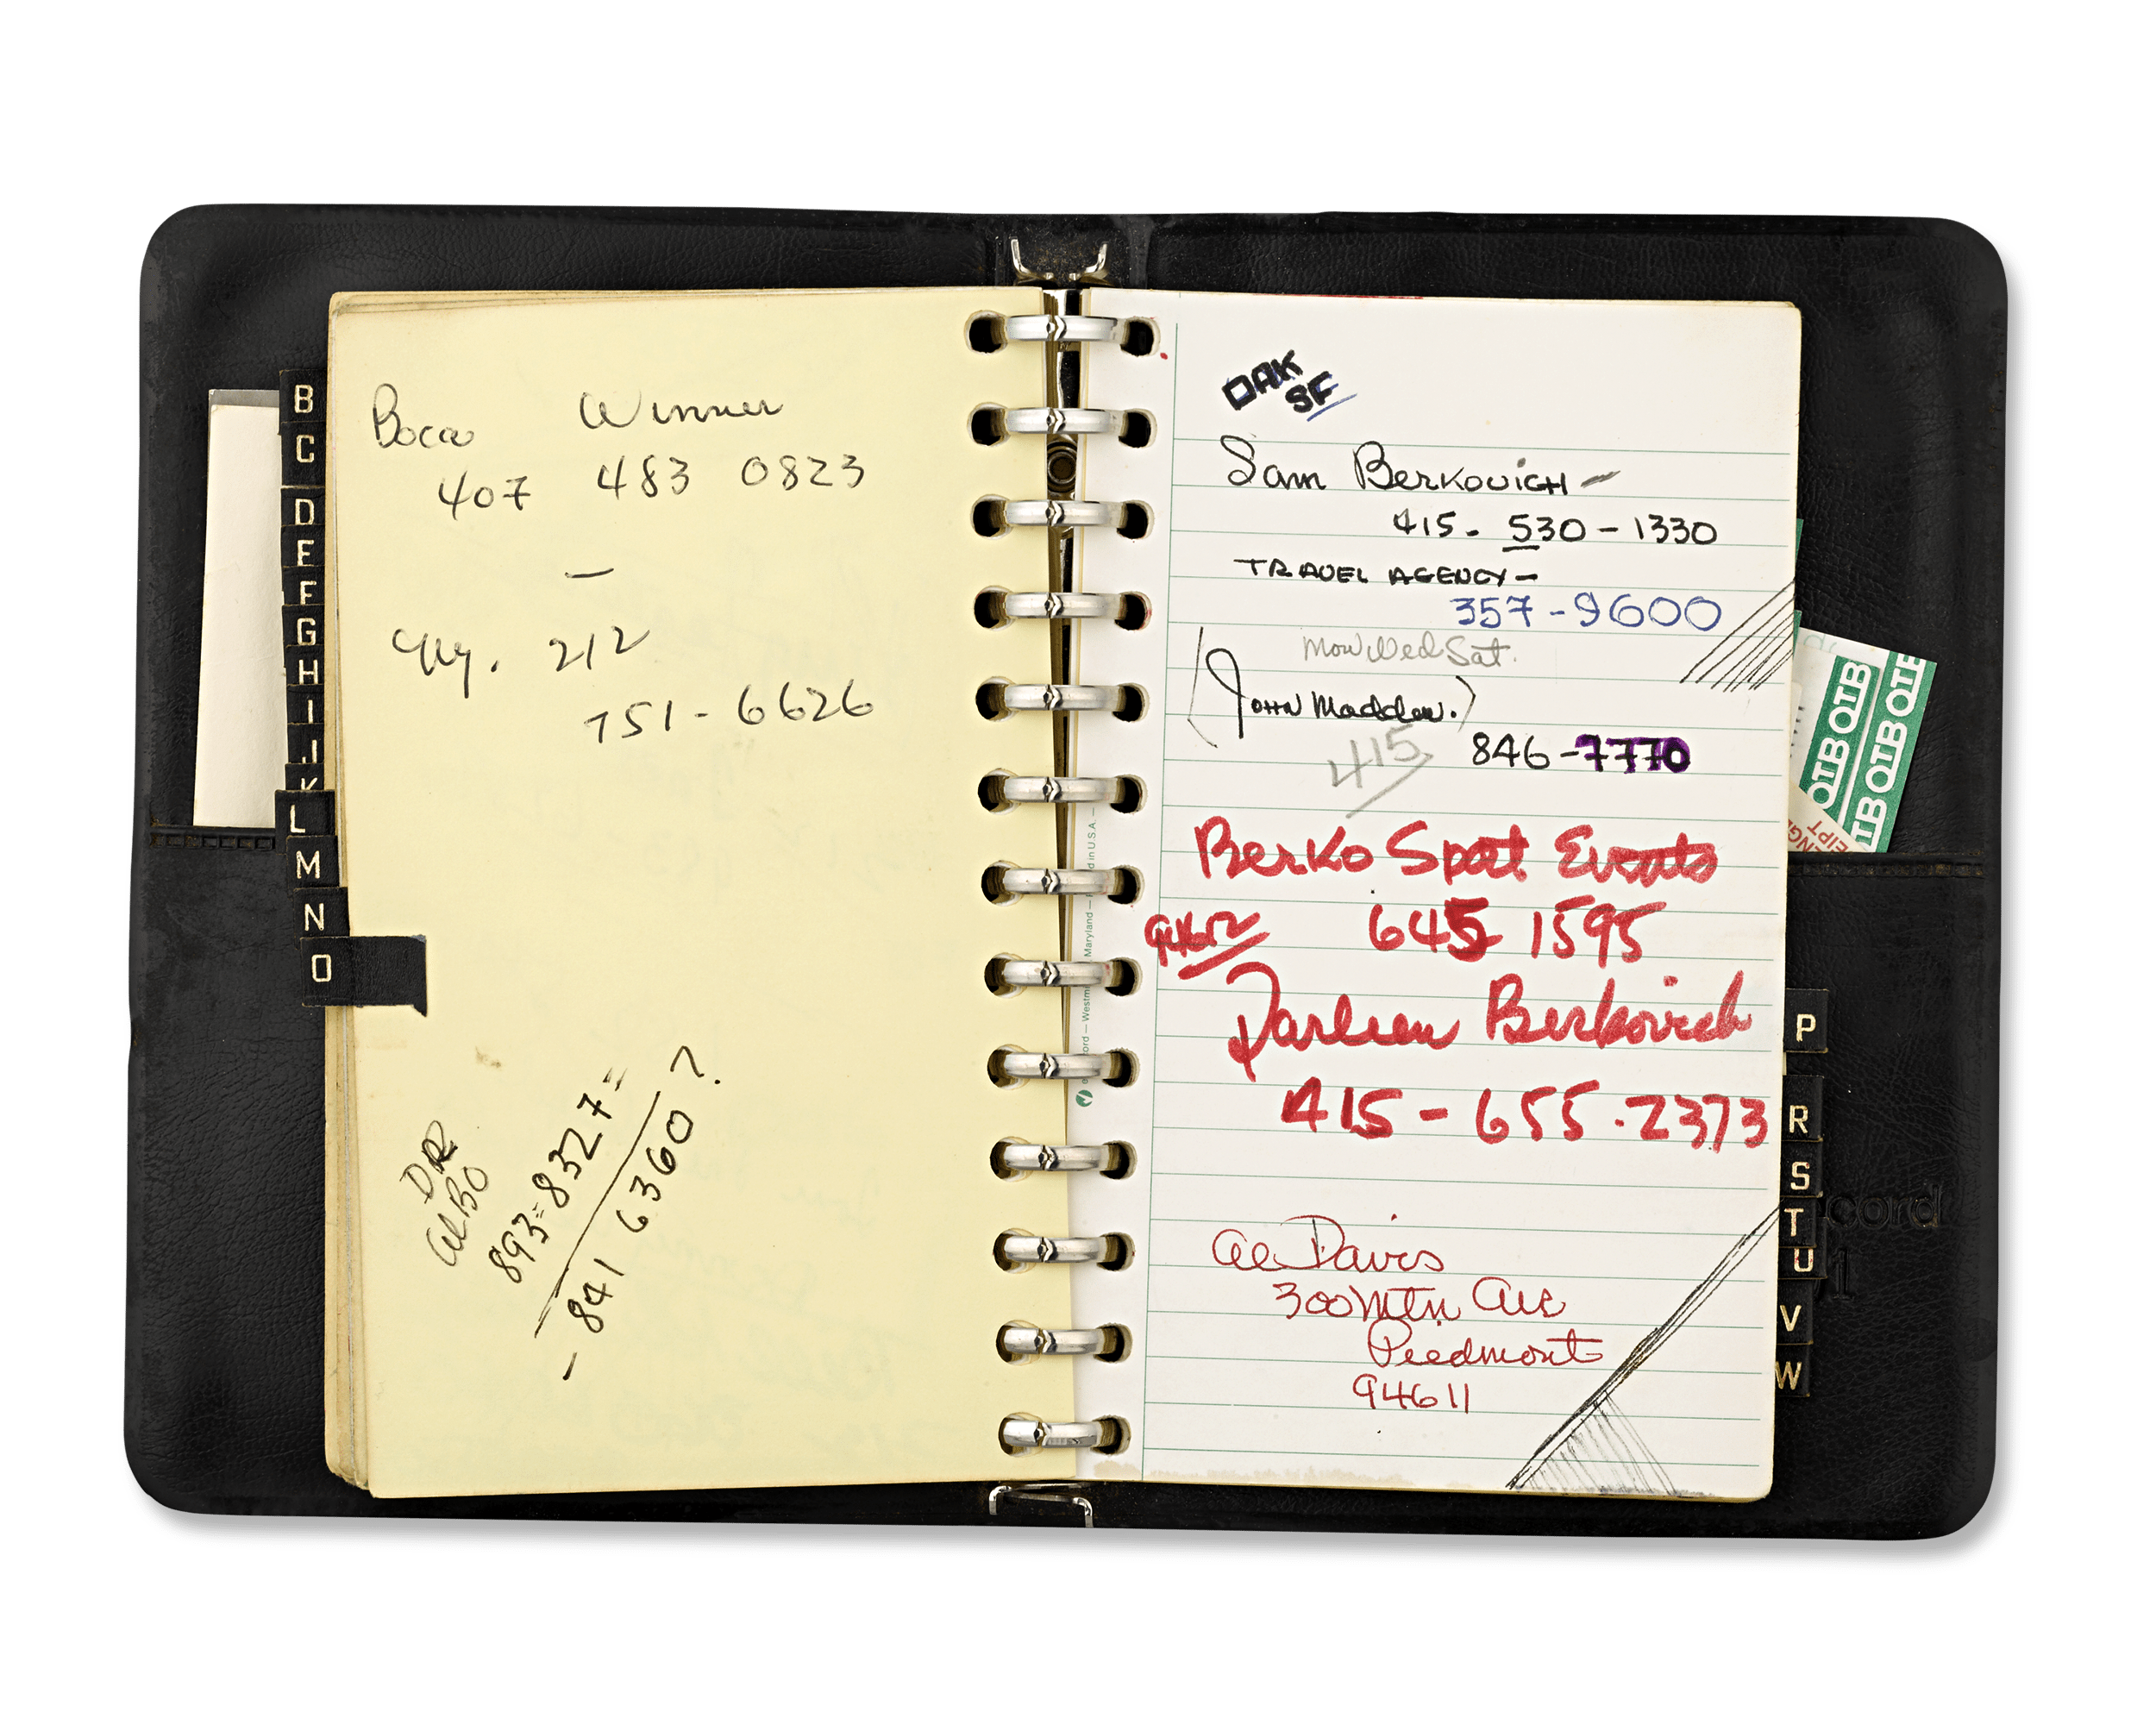 B
C
D
E
F
G
H
I
J
K
L
M
N
O
Boca Winner
407 483 0823
—
NY. 212
751-6626
DR
ALBO
893=8327=
- 841 6360 ?
OAK
SF
Sam BERKOVICH -
415. 530-1330
TRAVEL AGENCY -
357-9600
Mon Wed Sat.
(JOHN Madden.)
415 846-7770
Berko Spot Events
645 1595
Darleen Berkovich
415-655.2373
Al Davis
300 Mtn Ave
Piedmont
94611
OTB OTB
OTB OTB
EIPT
P
R
S
T
U
V
W
cord